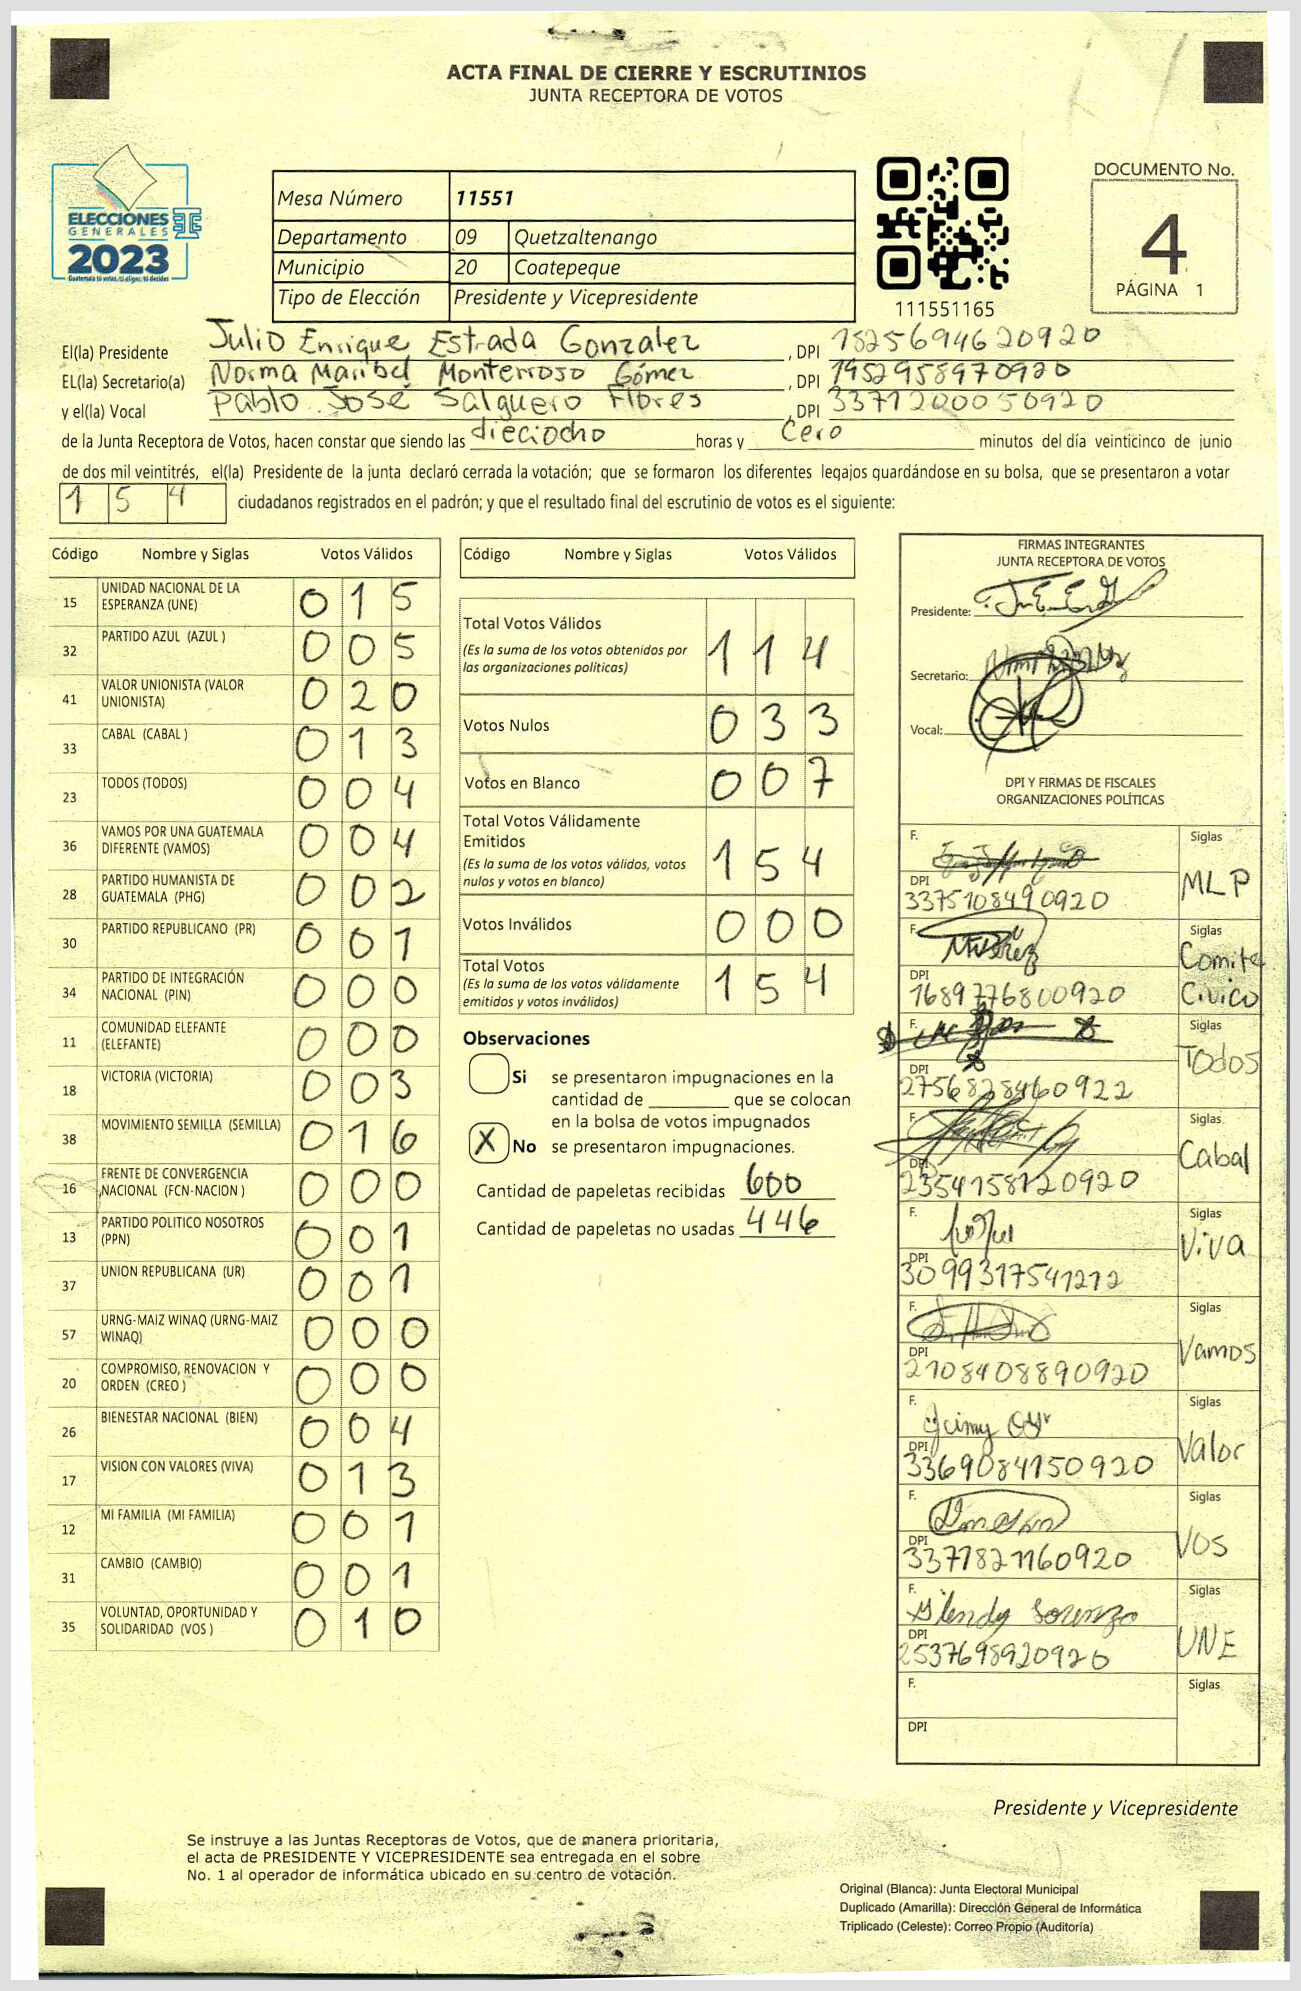 ACTA FINAL DE CIERRE Y ESCRUTINIOS
JUNTA RECEPTORA DE VOTOS
ELECCIONES
GENERALES
2023
Guatemala tú votas, tú eliges, tú decides
Mesa Número 11551
Departamento 09 Quetzaltenango
Municipio 20 Coatepeque
Tipo de Elección Presidente y Vicepresidente
111551165
DOCUMENTO No.
4
PÁGINA 1
El(la) Presidente Julio Enrique Estrada Gonzalez, DPI 1825694620920
EL(la) Secretario(a) Norma Maribel Monterroso Gómez, DPI 1952958970920
y el(la) Vocal Pablo José Salguero Flores, DPI 3371200050920
de la Junta Receptora de Votos, hacen constar que siendo las dieciocho horas y Cero minutos del día veinticinco de junio
de dos mil veintitrés, el(la) Presidente de la junta declaró cerrada la votación; que se formaron los diferentes legajos guardándose en su bolsa, que se presentaron a votar
154 ciudadanos registrados en el padrón; y que el resultado final del escrutinio de votos es el siguiente:
Código Nombre y Siglas Votos Válidos
15 UNIDAD NACIONAL DE LA ESPERANZA (UNE) 015
32 PARTIDO AZUL (AZUL ) 005
41 VALOR UNIONISTA (VALOR UNIONISTA) 020
33 CABAL (CABAL ) 013
23 TODOS (TODOS) 004
36 VAMOS POR UNA GUATEMALA DIFERENTE (VAMOS) 004
28 PARTIDO HUMANISTA DE GUATEMALA (PHG) 002
30 PARTIDO REPUBLICANO (PR) 001
34 PARTIDO DE INTEGRACIÓN NACIONAL (PIN) 000
11 COMUNIDAD ELEFANTE (ELEFANTE) 000
18 VICTORIA (VICTORIA) 003
38 MOVIMIENTO SEMILLA (SEMILLA) 016
16 FRENTE DE CONVERGENCIA NACIONAL (FCN-NACION ) 000
13 PARTIDO POLITICO NOSOTROS (PPN) 001
37 UNION REPUBLICANA (UR) 001
57 URNG-MAIZ WINAQ (URNG-MAIZ WINAQ) 000
20 COMPROMISO, RENOVACION Y ORDEN (CREO ) 000
26 BIENESTAR NACIONAL (BIEN) 004
17 VISION CON VALORES (VIVA) 013
12 MI FAMILIA (MI FAMILIA) 001
31 CAMBIO (CAMBIO) 001
35 VOLUNTAD, OPORTUNIDAD Y SOLIDARIDAD (VOS ) 010
Código Nombre y Siglas Votos Válidos
Total Votos Válidos 114
(Es la suma de los votos obtenidos por
las organizaciones políticas)
Votos Nulos 033
Votos en Blanco 007
Total Votos Válidamente
Emitidos 154
(Es la suma de los votos válidos, votos
nulos y votos en blanco)
Votos Inválidos 000
Total Votos 154
(Es la suma de los votos válidamente
emitidos y votos inválidos)
Observaciones
Si se presentaron impugnaciones en la
cantidad de ________ que se colocan
en la bolsa de votos impugnados
X No se presentaron impugnaciones.
Cantidad de papeletas recibidas 600
Cantidad de papeletas no usadas 446
FIRMAS INTEGRANTES
JUNTA RECEPTORA DE VOTOS
Presidente:
Secretario:
Vocal:
DPI Y FIRMAS DE FISCALES
ORGANIZACIONES POLÍTICAS
F. Siglas
DPI 3375108490920 MLP
F. Siglas
DPI 1689776800920 Comite Civico
F. Siglas
DPI 2756828460922 Todos
F. Siglas
DPI 2354158120920 Cabal
F. Siglas
DPI 3099317541212 Viva
F. Siglas
DPI 2108408890920 Vamos
F. Siglas
DPI 3369084150920 Valor
F. Siglas
DPI 3371821160920 VOS
F. Glendy Lorenzo Siglas
DPI 2537698920920 UNE
F. Siglas
DPI
Presidente y Vicepresidente
Se instruye a las Juntas Receptoras de Votos, que de manera prioritaria,
el acta de PRESIDENTE Y VICEPRESIDENTE sea entregada en el sobre
No. 1 al operador de informática ubicado en su centro de votación.
Original (Blanca): Junta Electoral Municipal
Duplicado (Amarilla): Dirección General de Informática
Triplicado (Celeste): Correo Propio (Auditoría)